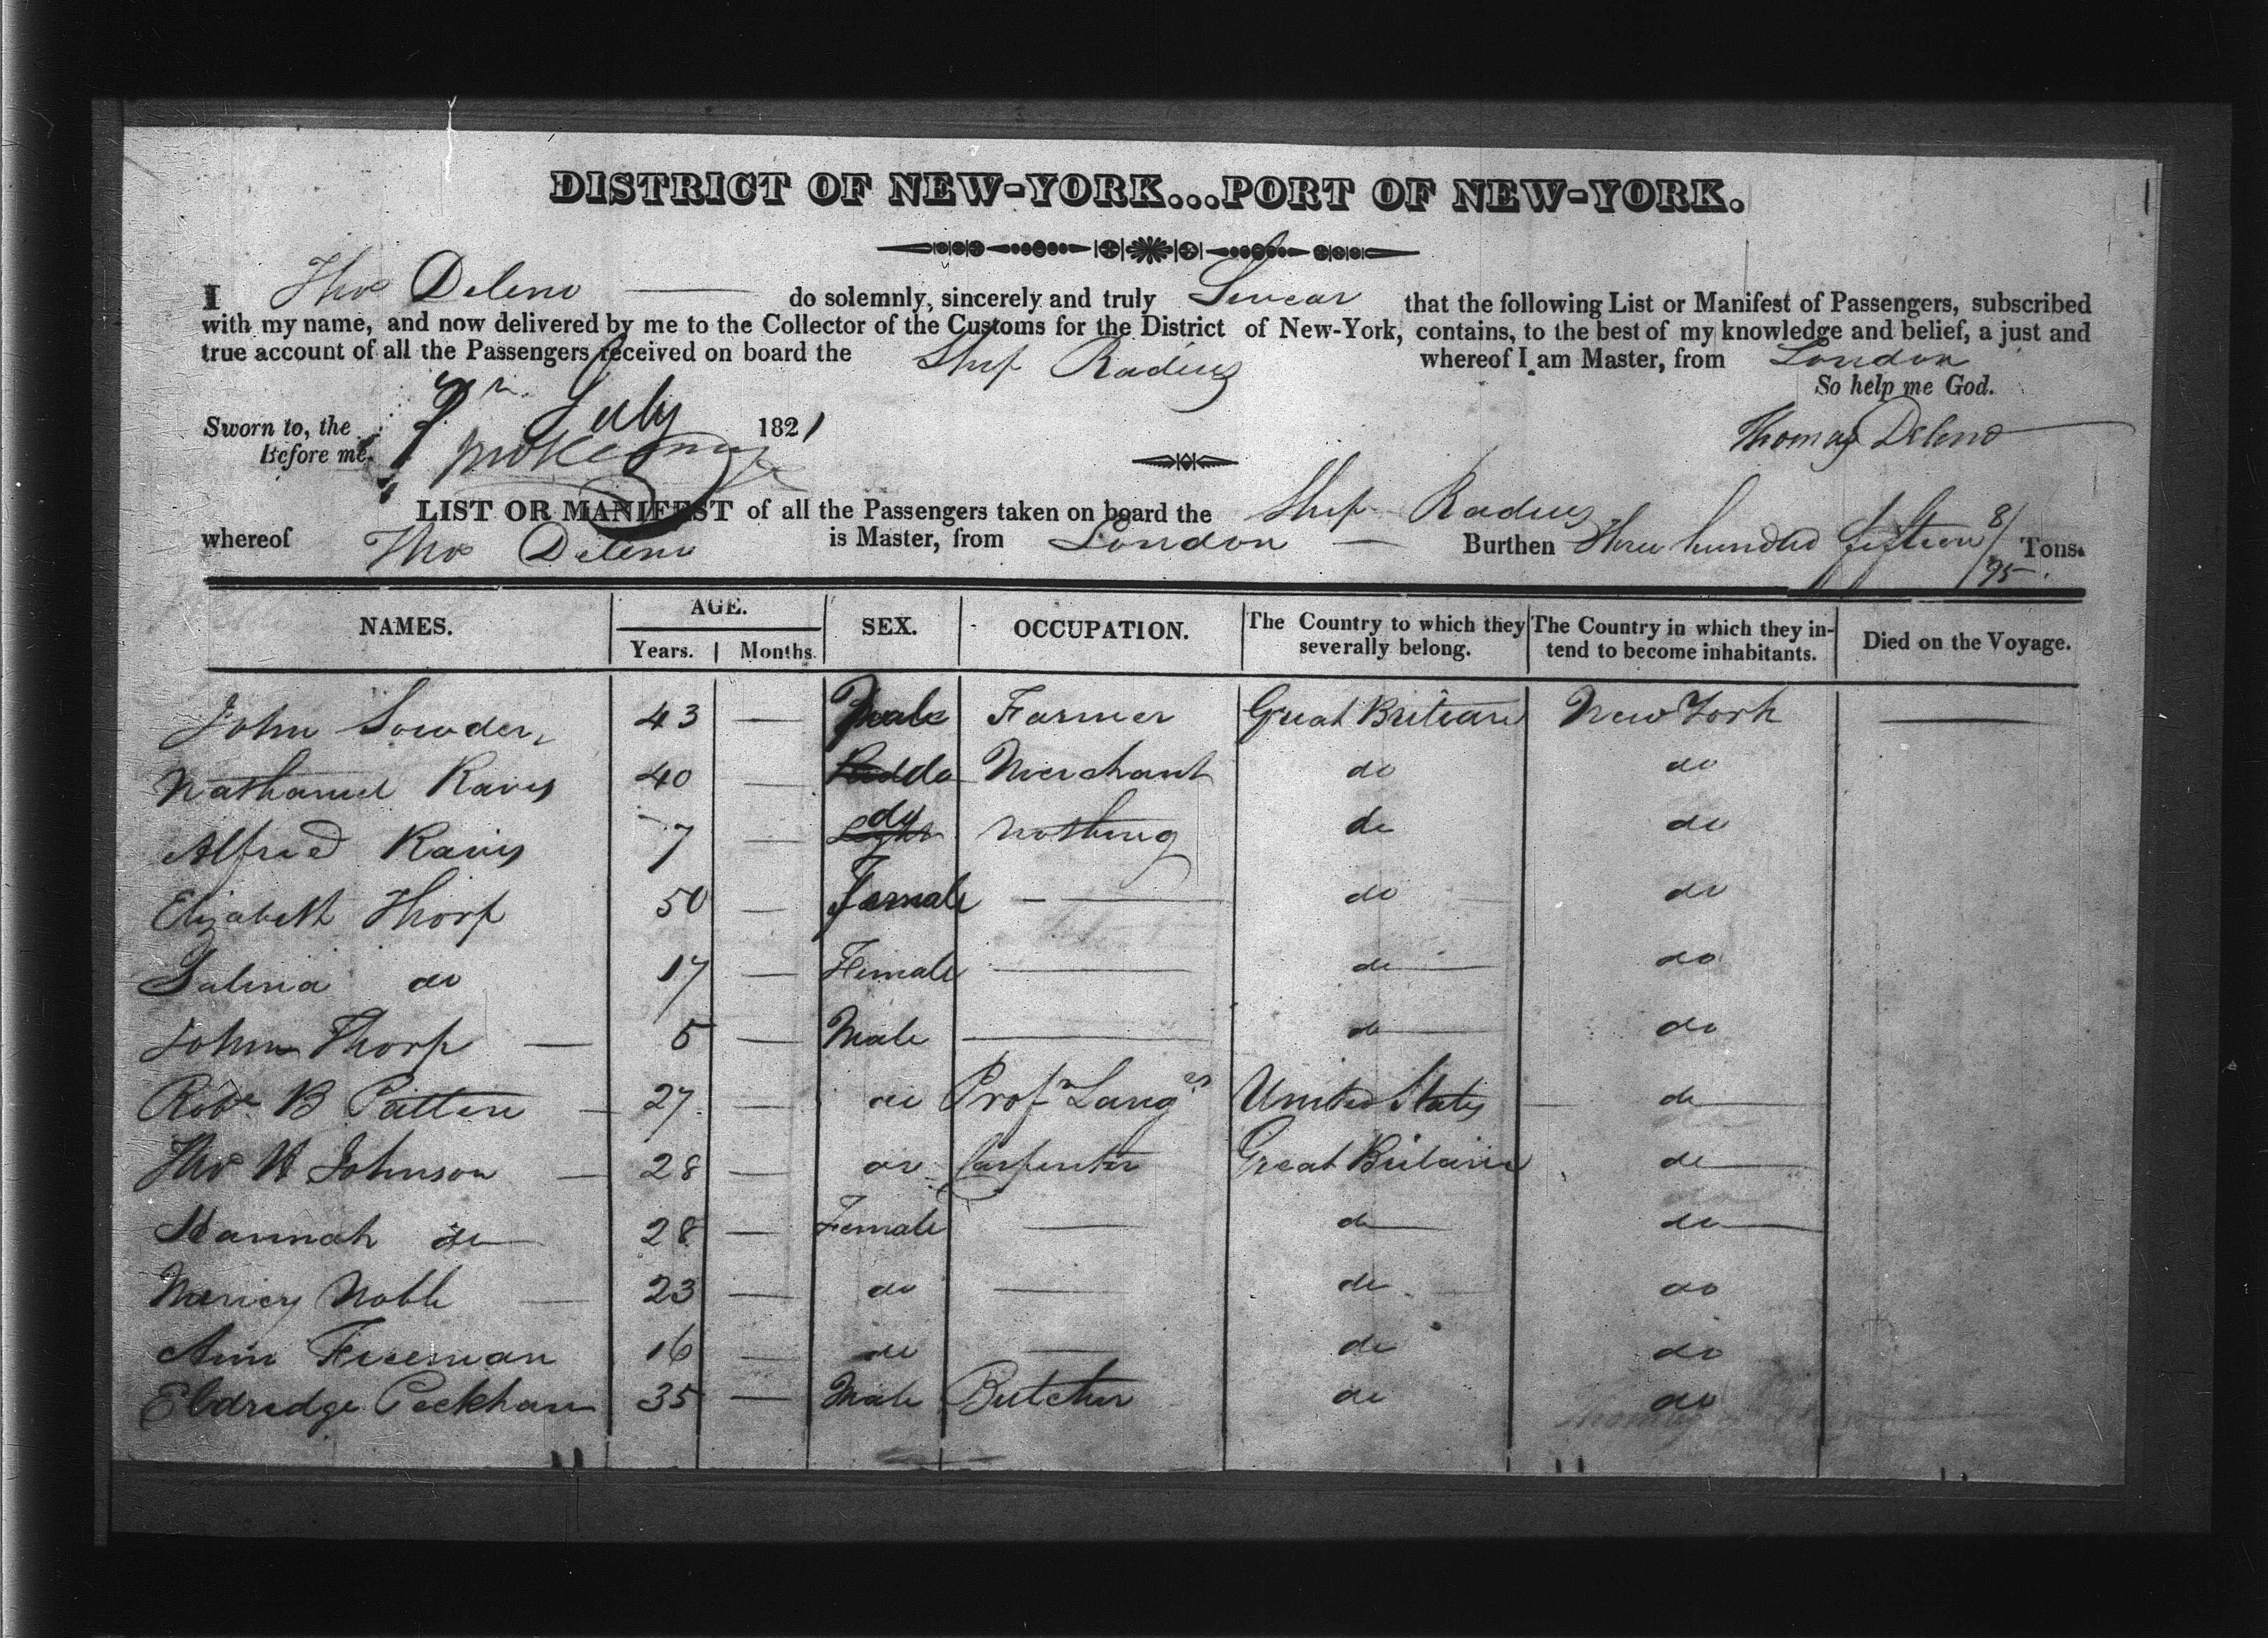 DISTRICT OF NEW-YORK...PORT OF NEW-YORK.
I Thos Deleno do solemnly, sincerely and truly Swear that the following List or Manifest of Passengers, subscribed
with my name, and now delivered by me to the Collector of the Customs for the District of New-York, contains, to the best of my knowledge and belief, a just and
true account of all the Passengers received on board the Ship Radius whereof I am Master, from London
So help me God.
Sworn to, the July 1821
Thomas Deleno
Before me
LIST OR MANIFEST of all the Passengers taken on board the Ship Radius
whereof Thos Deleno is Master, from London Burthen Three hundred fifteen 8/95 Tons.
NAMES. AGE. SEX. OCCUPATION. The Country to which they severally belong. The Country in which they intend to become inhabitants. Died on the Voyage.
Years. Months.
John Sowden 43 — Male Farmer Great Britain New York —
Nathaniel Ravis 40 — do Merchant do do
Alfred Ravis 7 — do nothing do do
Elizabeth Thorp 50 — Female — do do
Salina do 17 — Female — do do
John Thorp — 5 — Male — do do
Robt B Patten — 27 — do Profr Langes United States do
Thos H Johnson — 28 — do Carpenter Great Britain do
Hannah do 28 — Female — do do
Nancy Noble — 23 — do — do do
Ann Freeman 16 — do — do do
Eldredge Peckham 35 — Male Butcher do do